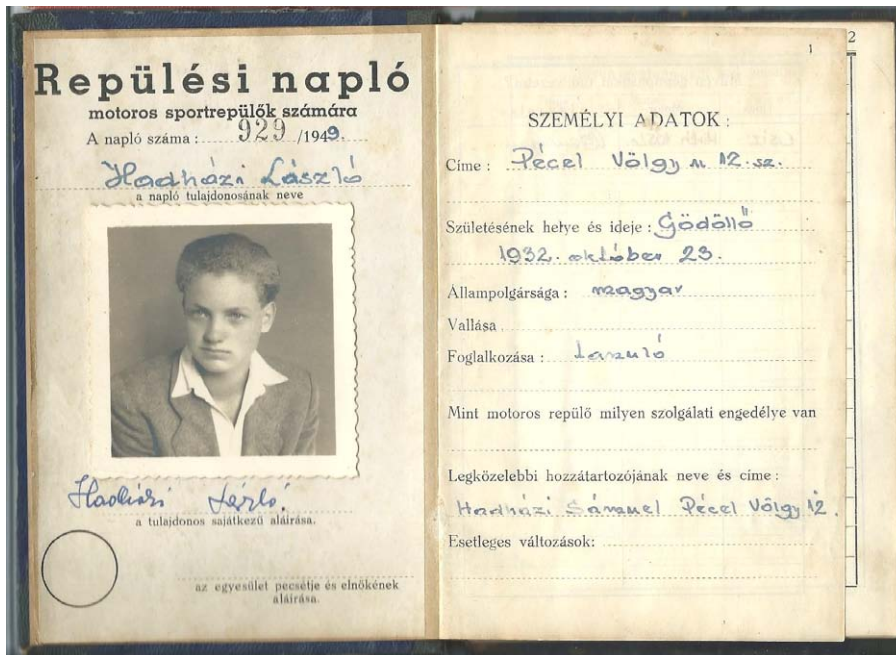 Repülési napló
motoros sportrepülők számára
A napló száma : 929 /1949.
Hadházi László
a napló tulajdonosának neve
Hadházi László.
a tulajdonos sajátkezű aláírása.
az egyesület pecsétje és elnökének
aláírása.
1
SZEMÉLYI ADATOK :
Címe : Pécel Völgy u 12. sz.
Születésének helye és ideje : Gödöllő
1932. október 23.
Állampolgársága : magyar
Vallása
Foglalkozása : tanuló
Mint motoros repülő milyen szolgálati engedélye van
Legközelebbi hozzátartozójának neve és címe :
Hadházi Sámuel Pécel Völgy 12.
Esetleges változások:
2